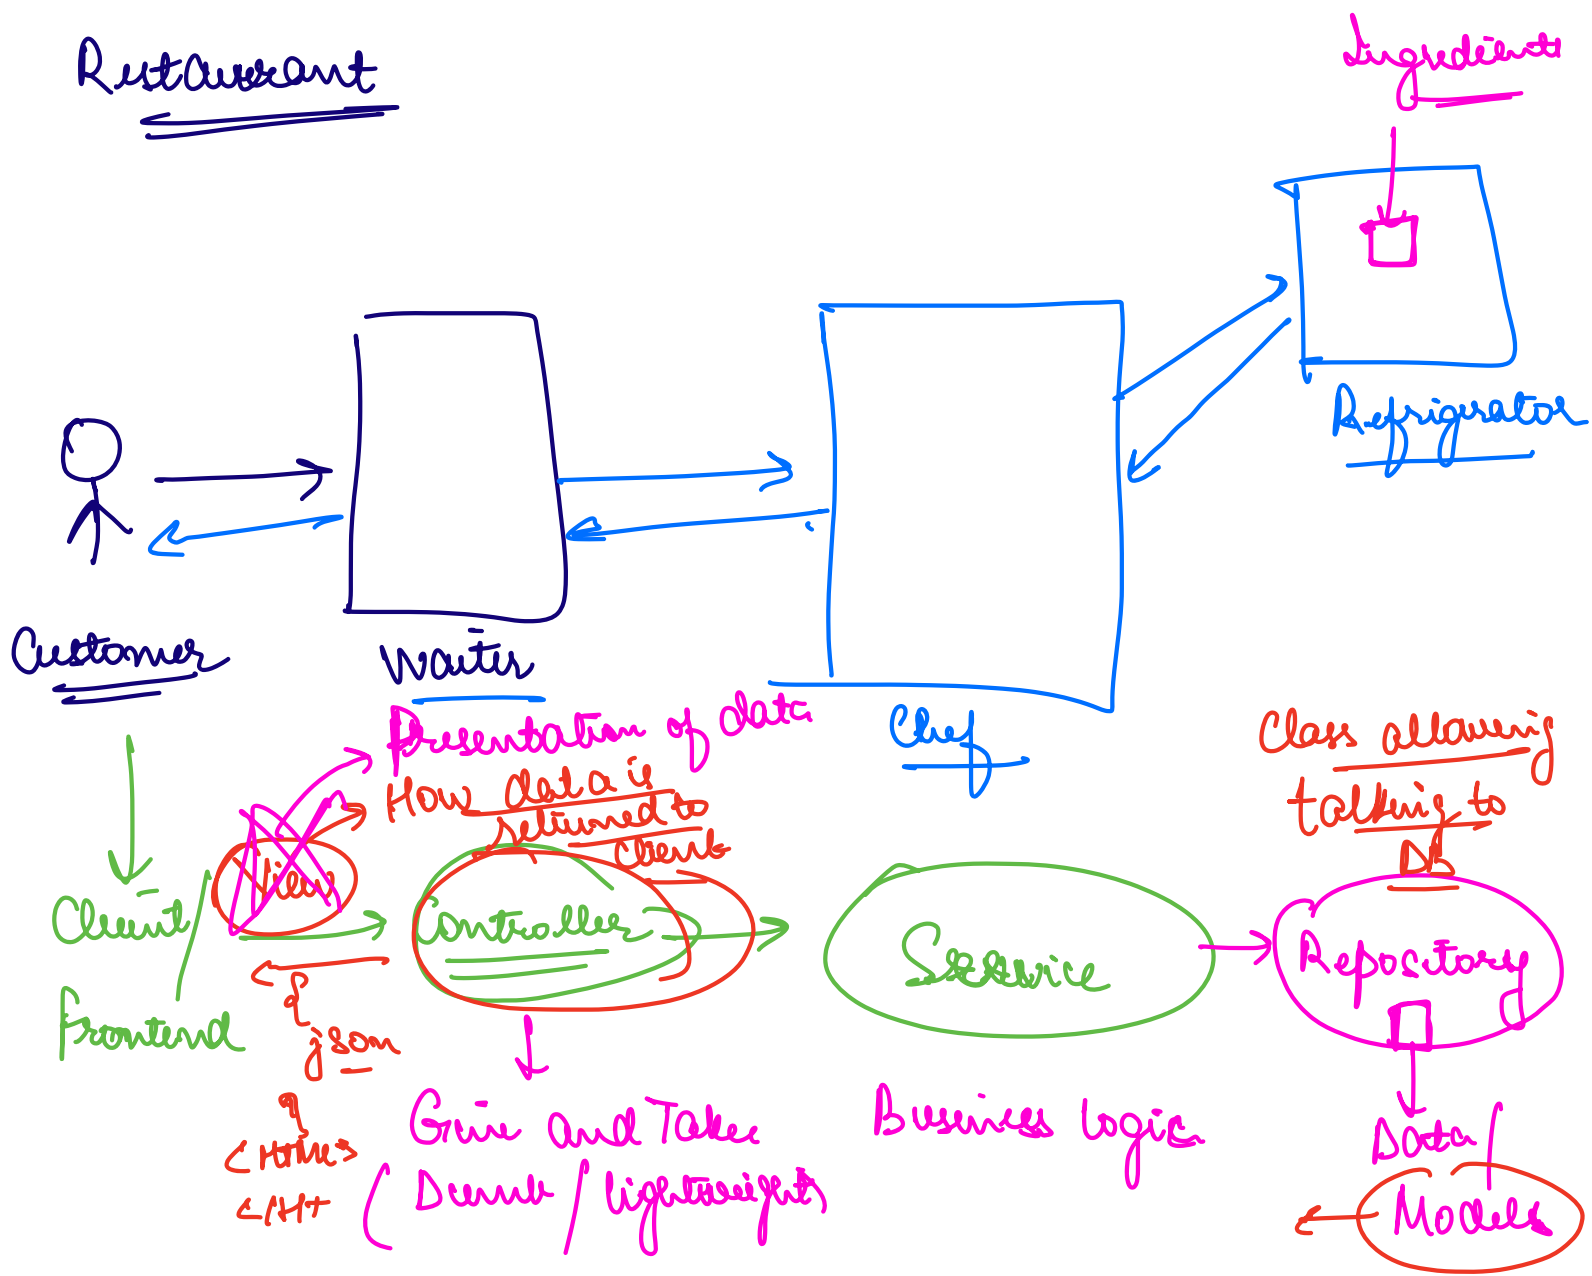 Restaurant
Ingredients
Refrigerator
Customer
Waiter
Chef
Presentation of data
How data is
returned to
client
Class allowing
talking to
DB
Client/
Frontend
View
Controller
Service
Repository
json
Give and Take
(Dumb/lightweight)
Business Logic
Data/
Models
<HTML>
</H+